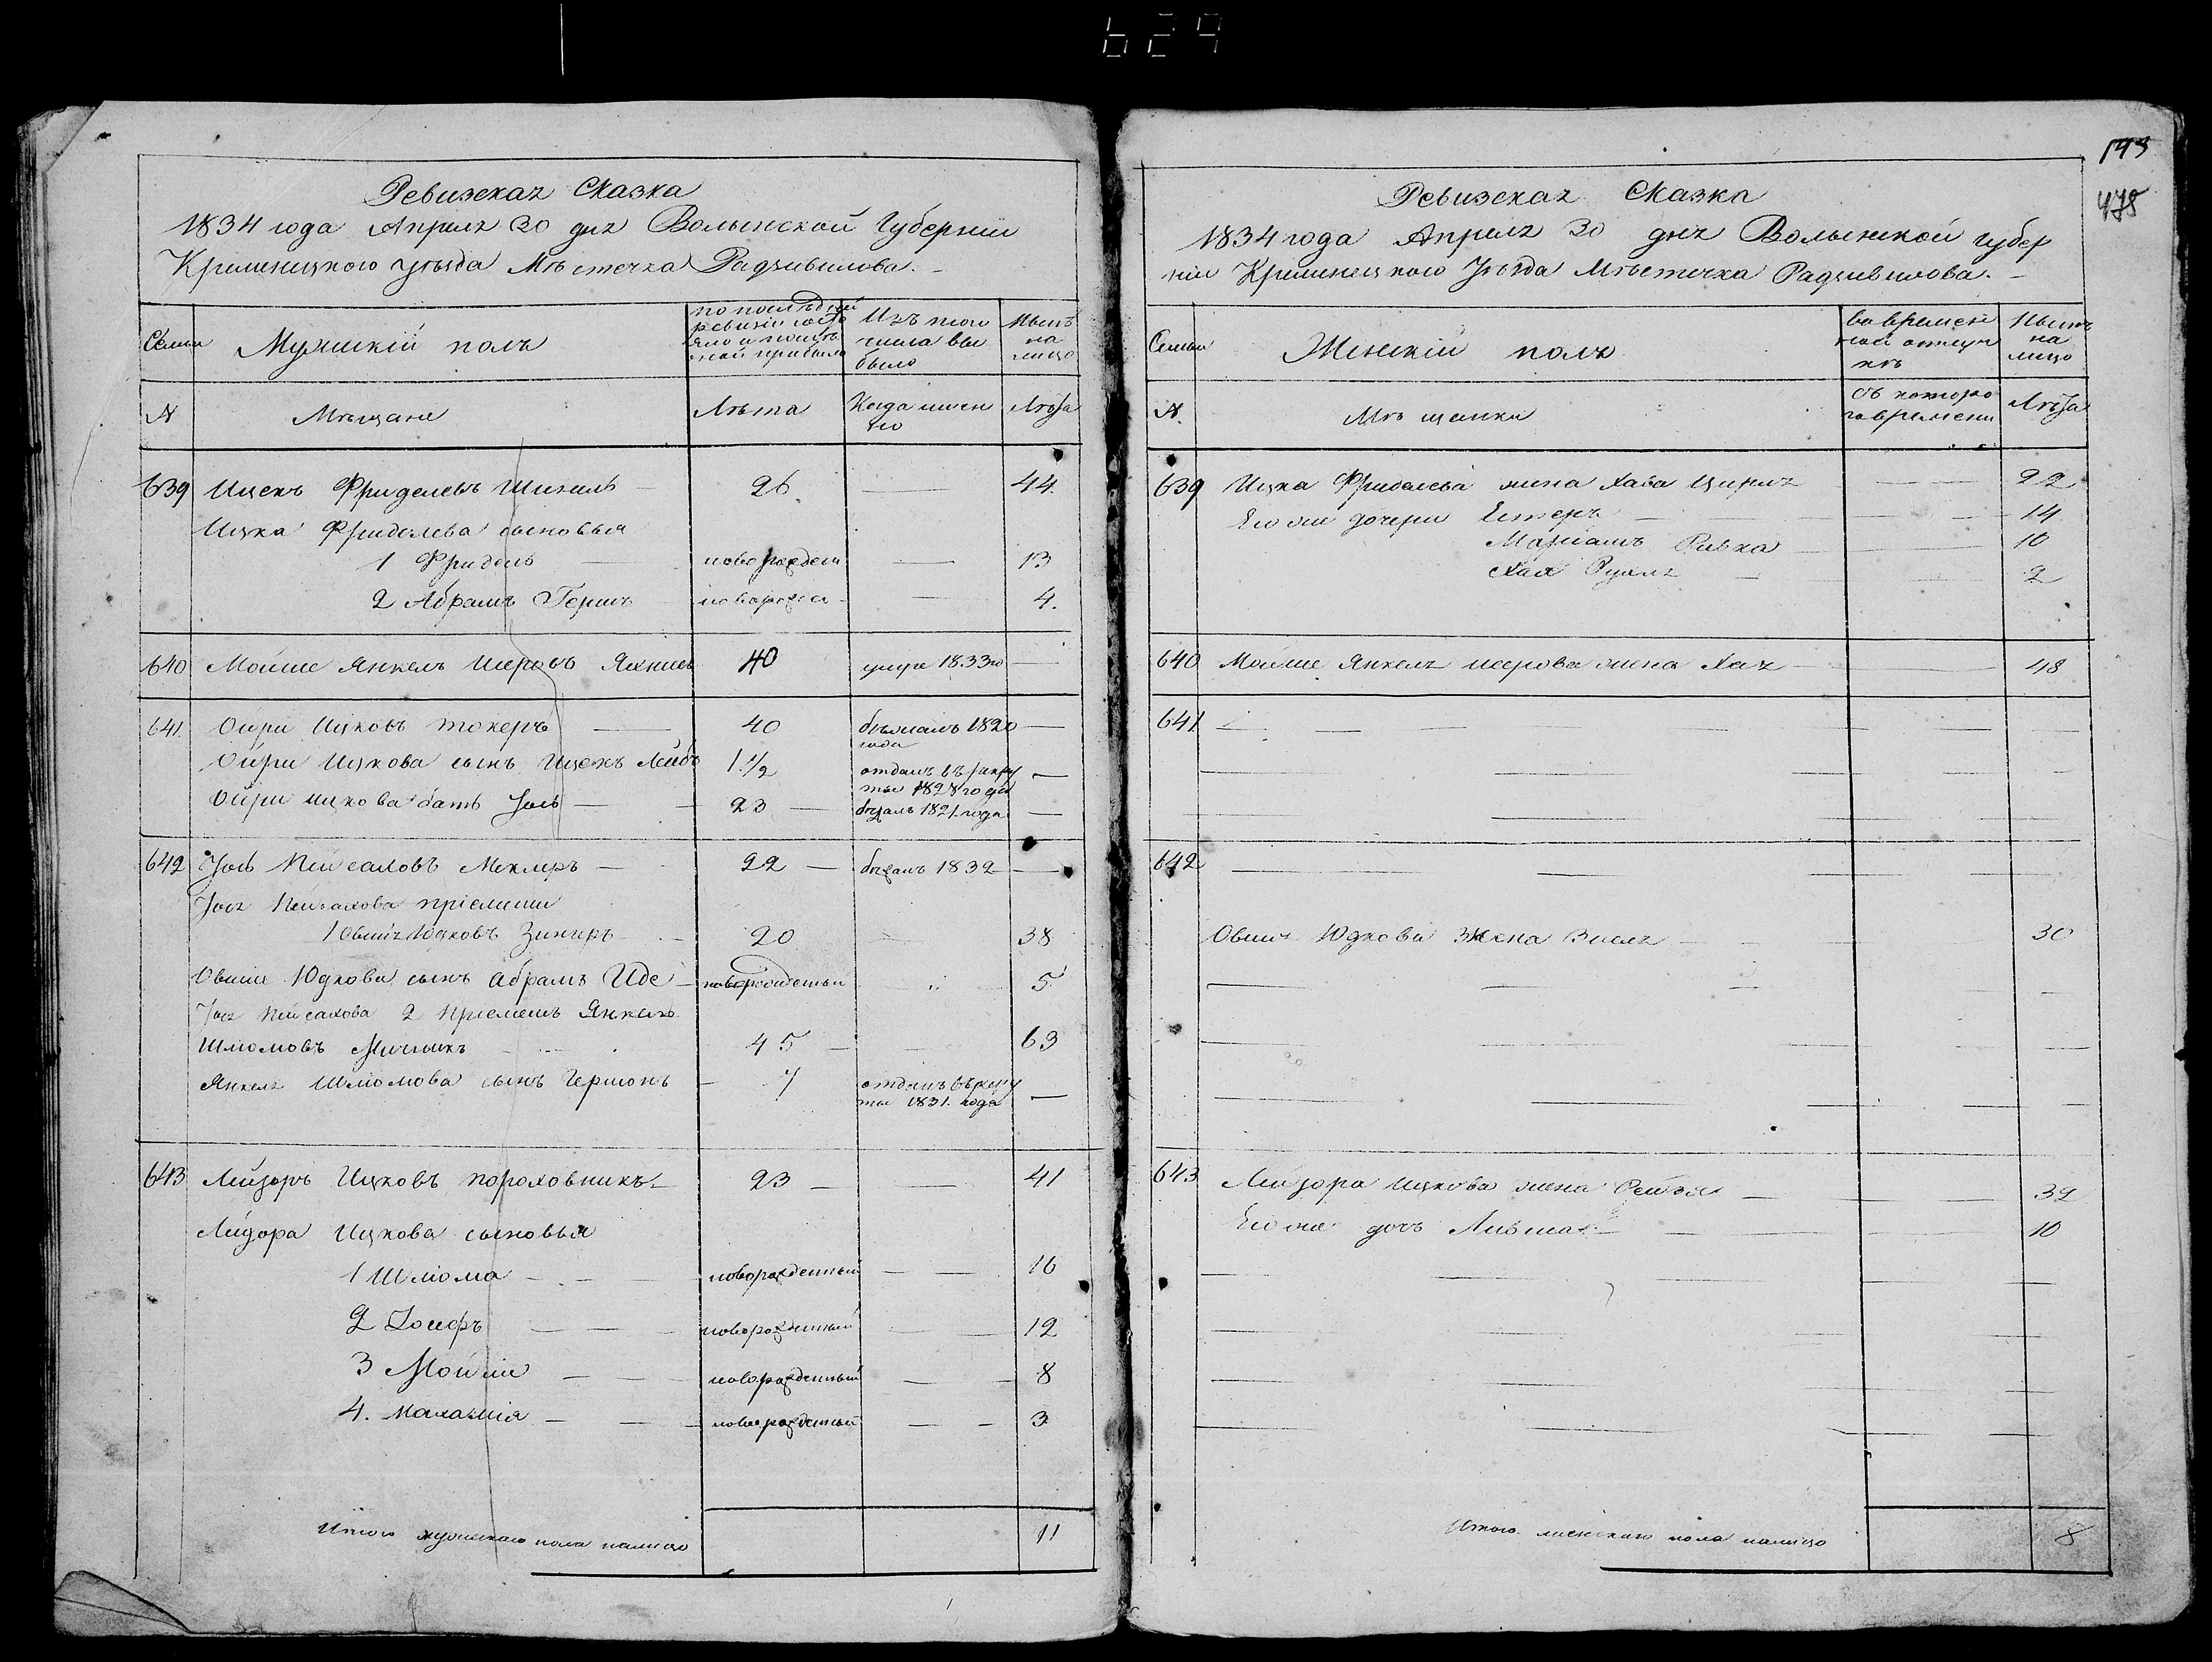 629
Ревизская Сказка
1834 года Апреля 30 дня Волынской Губернiи
Кременецкого уѣзда Мѣстечка Радзивилова.
Семьи
Мужскiй полъ
по послѣдней ревизiи состояло и послѣ
Изъ того числа выбыло
Нынѣ на лицо
N
Мѣщане
Лѣта
Когда именно
Лѣта
639 Ицекъ Фриделевъ 26 — 44.
Ицка Фриделева сыновья
1 Фридель — новорожден — 13
2 Абрамъ Герш — 4.
640 Мойше Янкель 40 умре 1833го —
641. Ойри Ицковъ токеръ — 40 1820 года —
Ойри Ицкова сынъ Ицекъ Лейбъ 1 1/2 отданъ въ рекруты 1828 года —
Ойри ицкова Іось — 23 — 1821 года —
642 Іось Пейсаховъ Меклеръ — 22 — 1832 —
Іося Пейсахова прiемыши
1 Овшiя Юдковъ 20 38
Овшiя Юдкова сынъ Абрамъ Иде — новорожденый 5
Іося Пейсахова 2 прiемышъ Янкель
Шлiомовъ 45 — 63
Янкеля Шлiомова сынъ Гершонъ — 7 отданъ въ рекруты 1831. года —
643 Лейзоръ Ицковъ пороховникъ — 23 — 41
Лейзора Ицкова сыновья
1 Шлiома — новорожденный — 16
2 Іосифъ — новорожденный — 12
3 Мойше — новорожденный — 8
4. — новорожденный — 3
Итого мужескаго пола налицо 11
143
478
Ревизская Сказка
1834 года Апреля 30 дня Волынской губер
нiи Кременецкого Уѣзда Мѣстечка Радзивилова. —
Семьи
Женскiй полъ
во временной отлучкѣ
Нынѣ на лицо
N.
Мѣщанки
Съ которого времени
Лѣта
639 Ицка Фриделева жена Хава — 22
Его же дочери Естеръ — 14
Марiамъ Ривка — 10
Хая Рухля — 2
640 Мойше Янкеля меерова жена Хая — 48
641 —
642 —
Овшiя Юдкова Жена — 30
643 Лейзора Ицкова жена — 39
Его же дочь — 10
Итого женскаго пола налицо 8